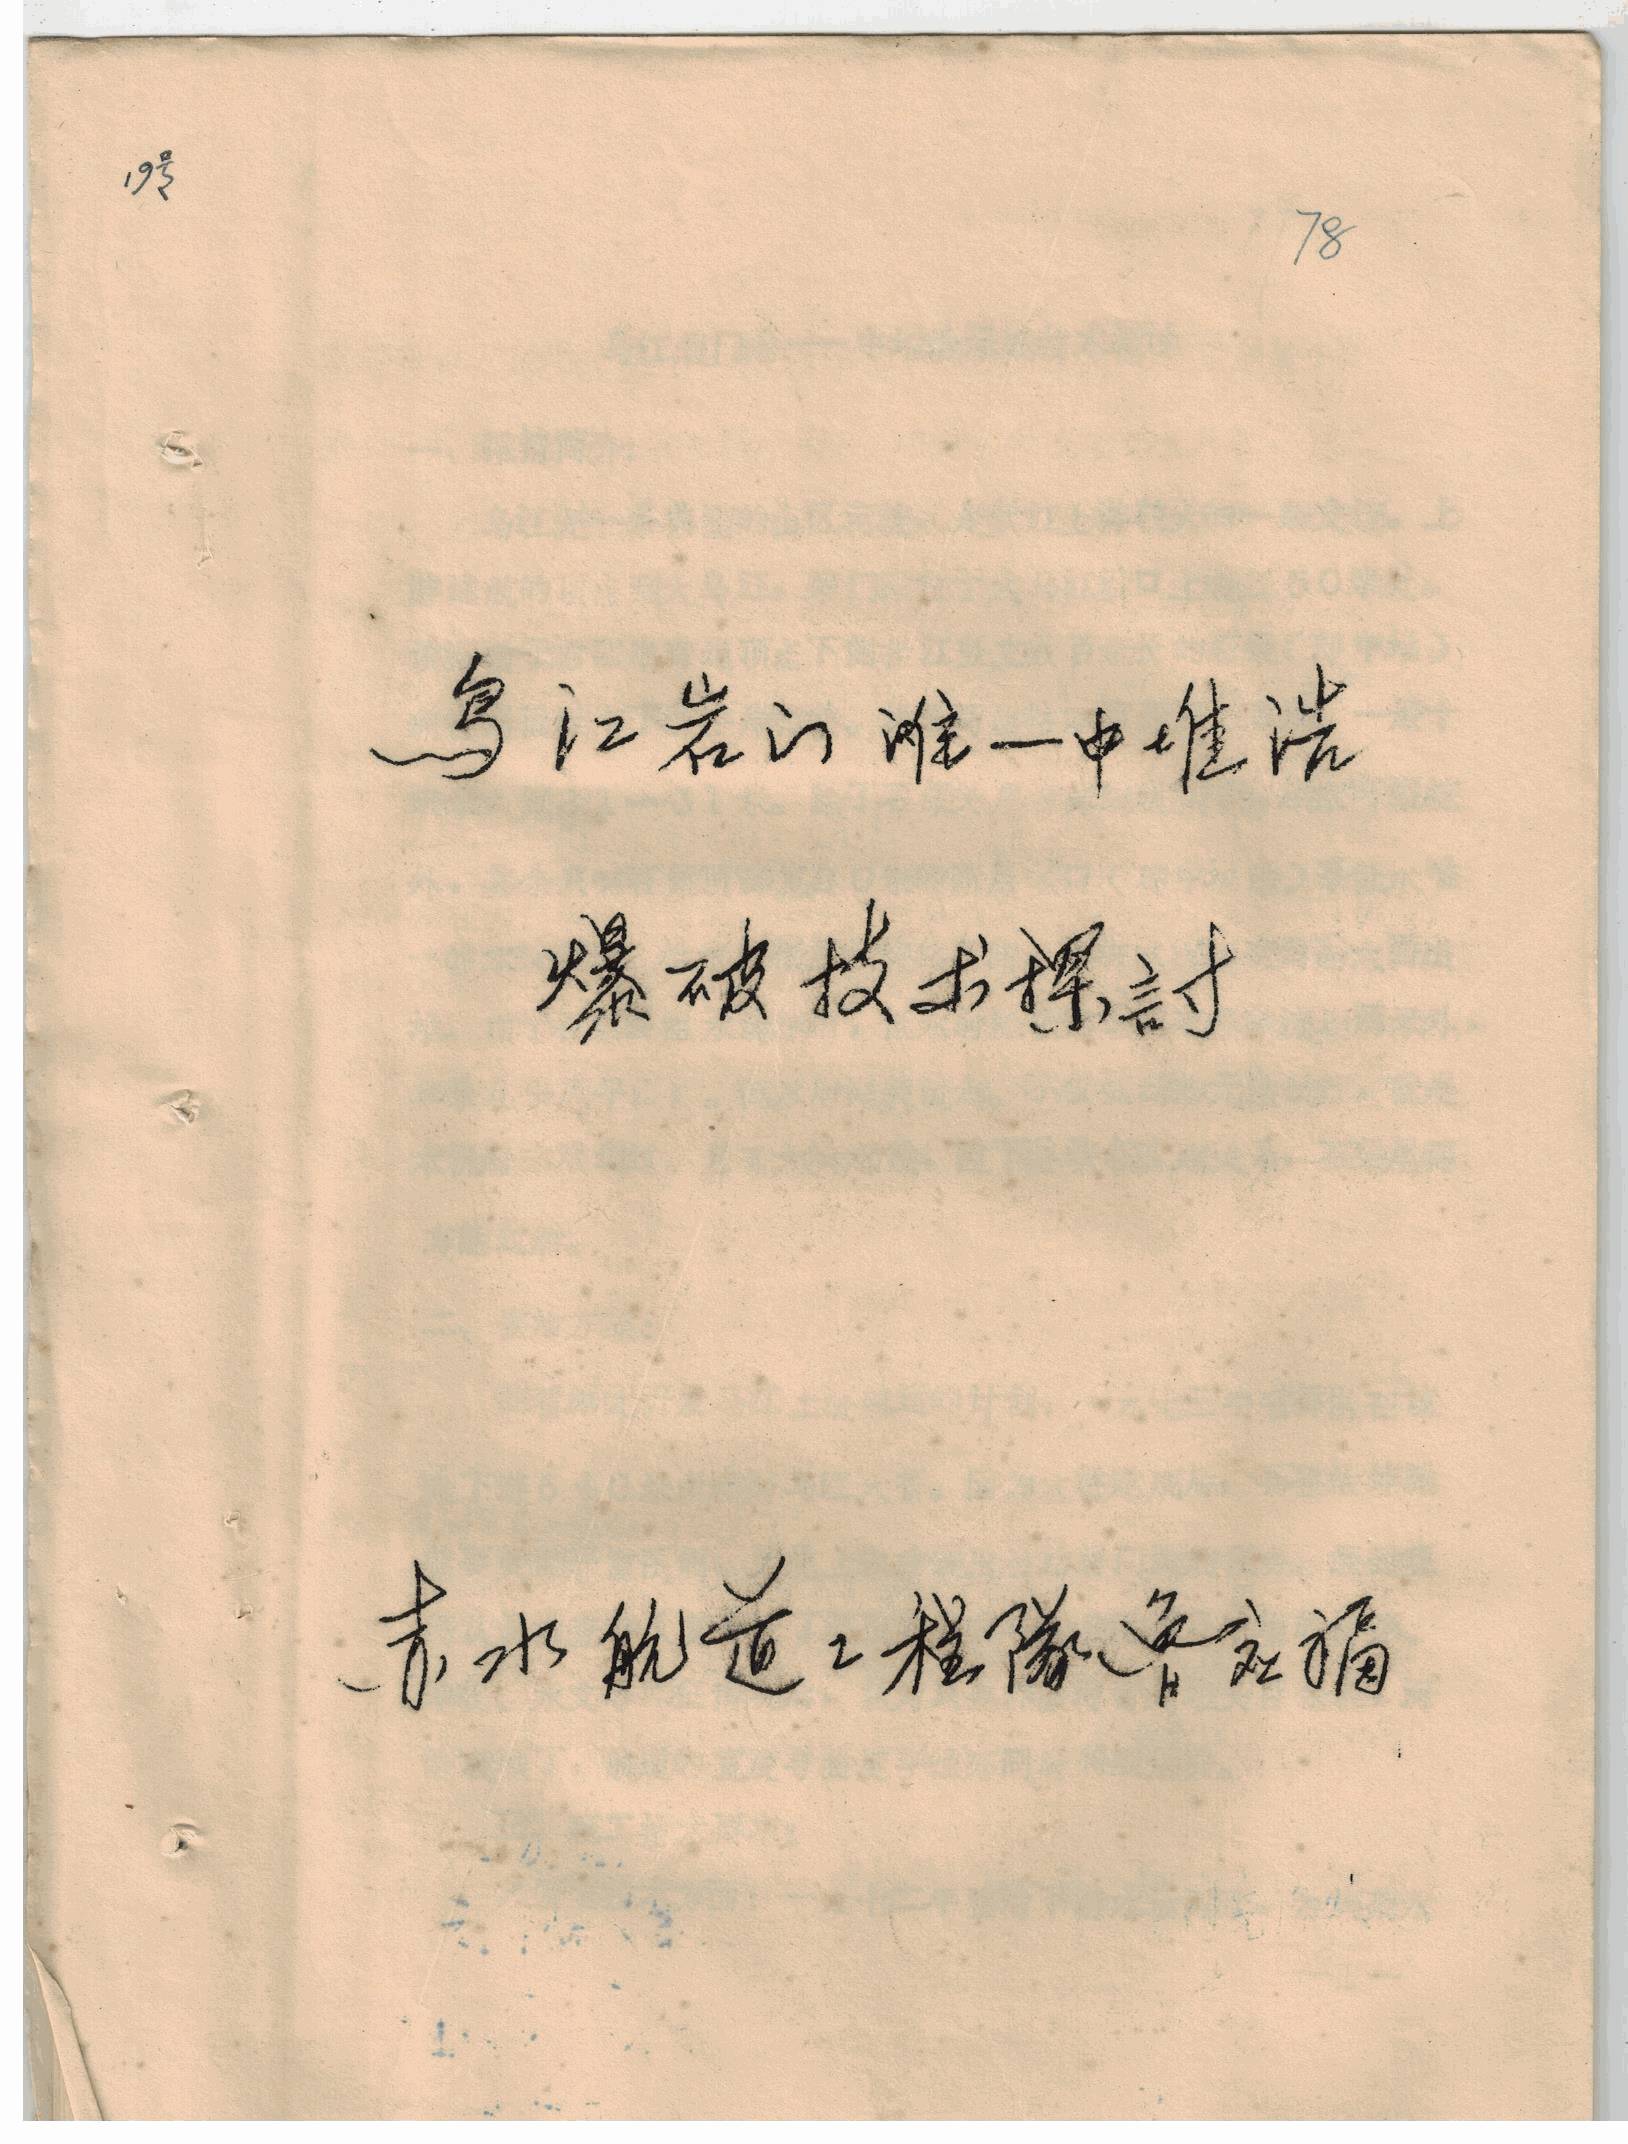 19号
78
乌江岩门滩一中堆浩
爆破技术探討
赤水航道工程隊 福